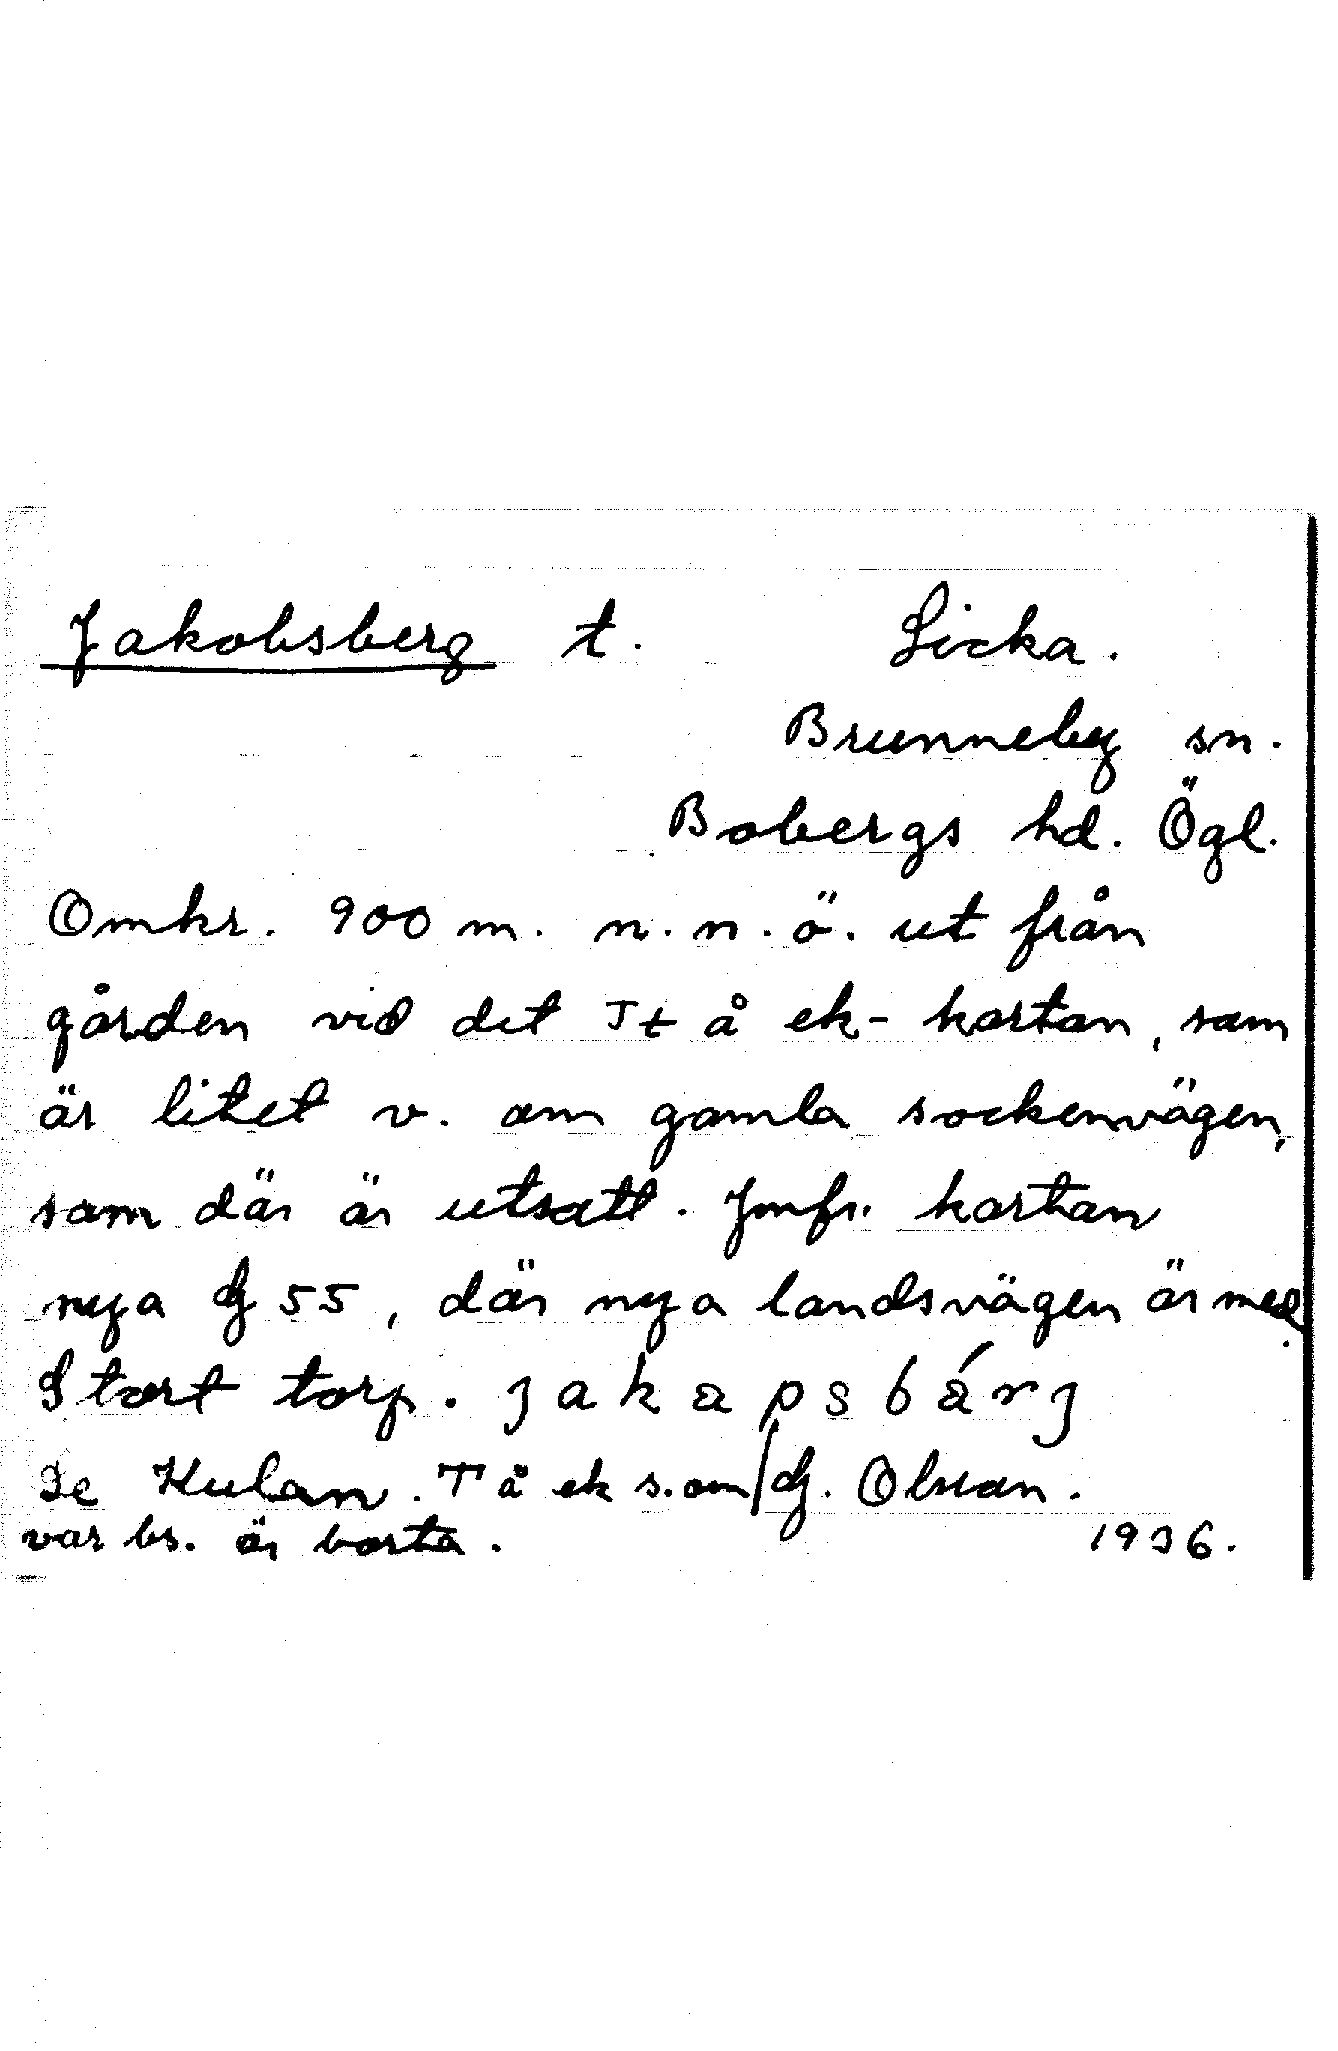 Jakobsberg t. Sicka.
Brunneby sn.
Bobergs hd. Ögl.
Omkr. 900 m. n.n.ö. ut från
gården vid det Jt å ek-kartan, som
är litet v. om gamla sockenvägen,
som där är utsatt. Jmfr. kartan
nya G 55, där nya landsvägen är med.
Stort torp. jakapsbárj
Se Kulan. T å ek s. om G. Olsson.
var bs. är borta. 1936.